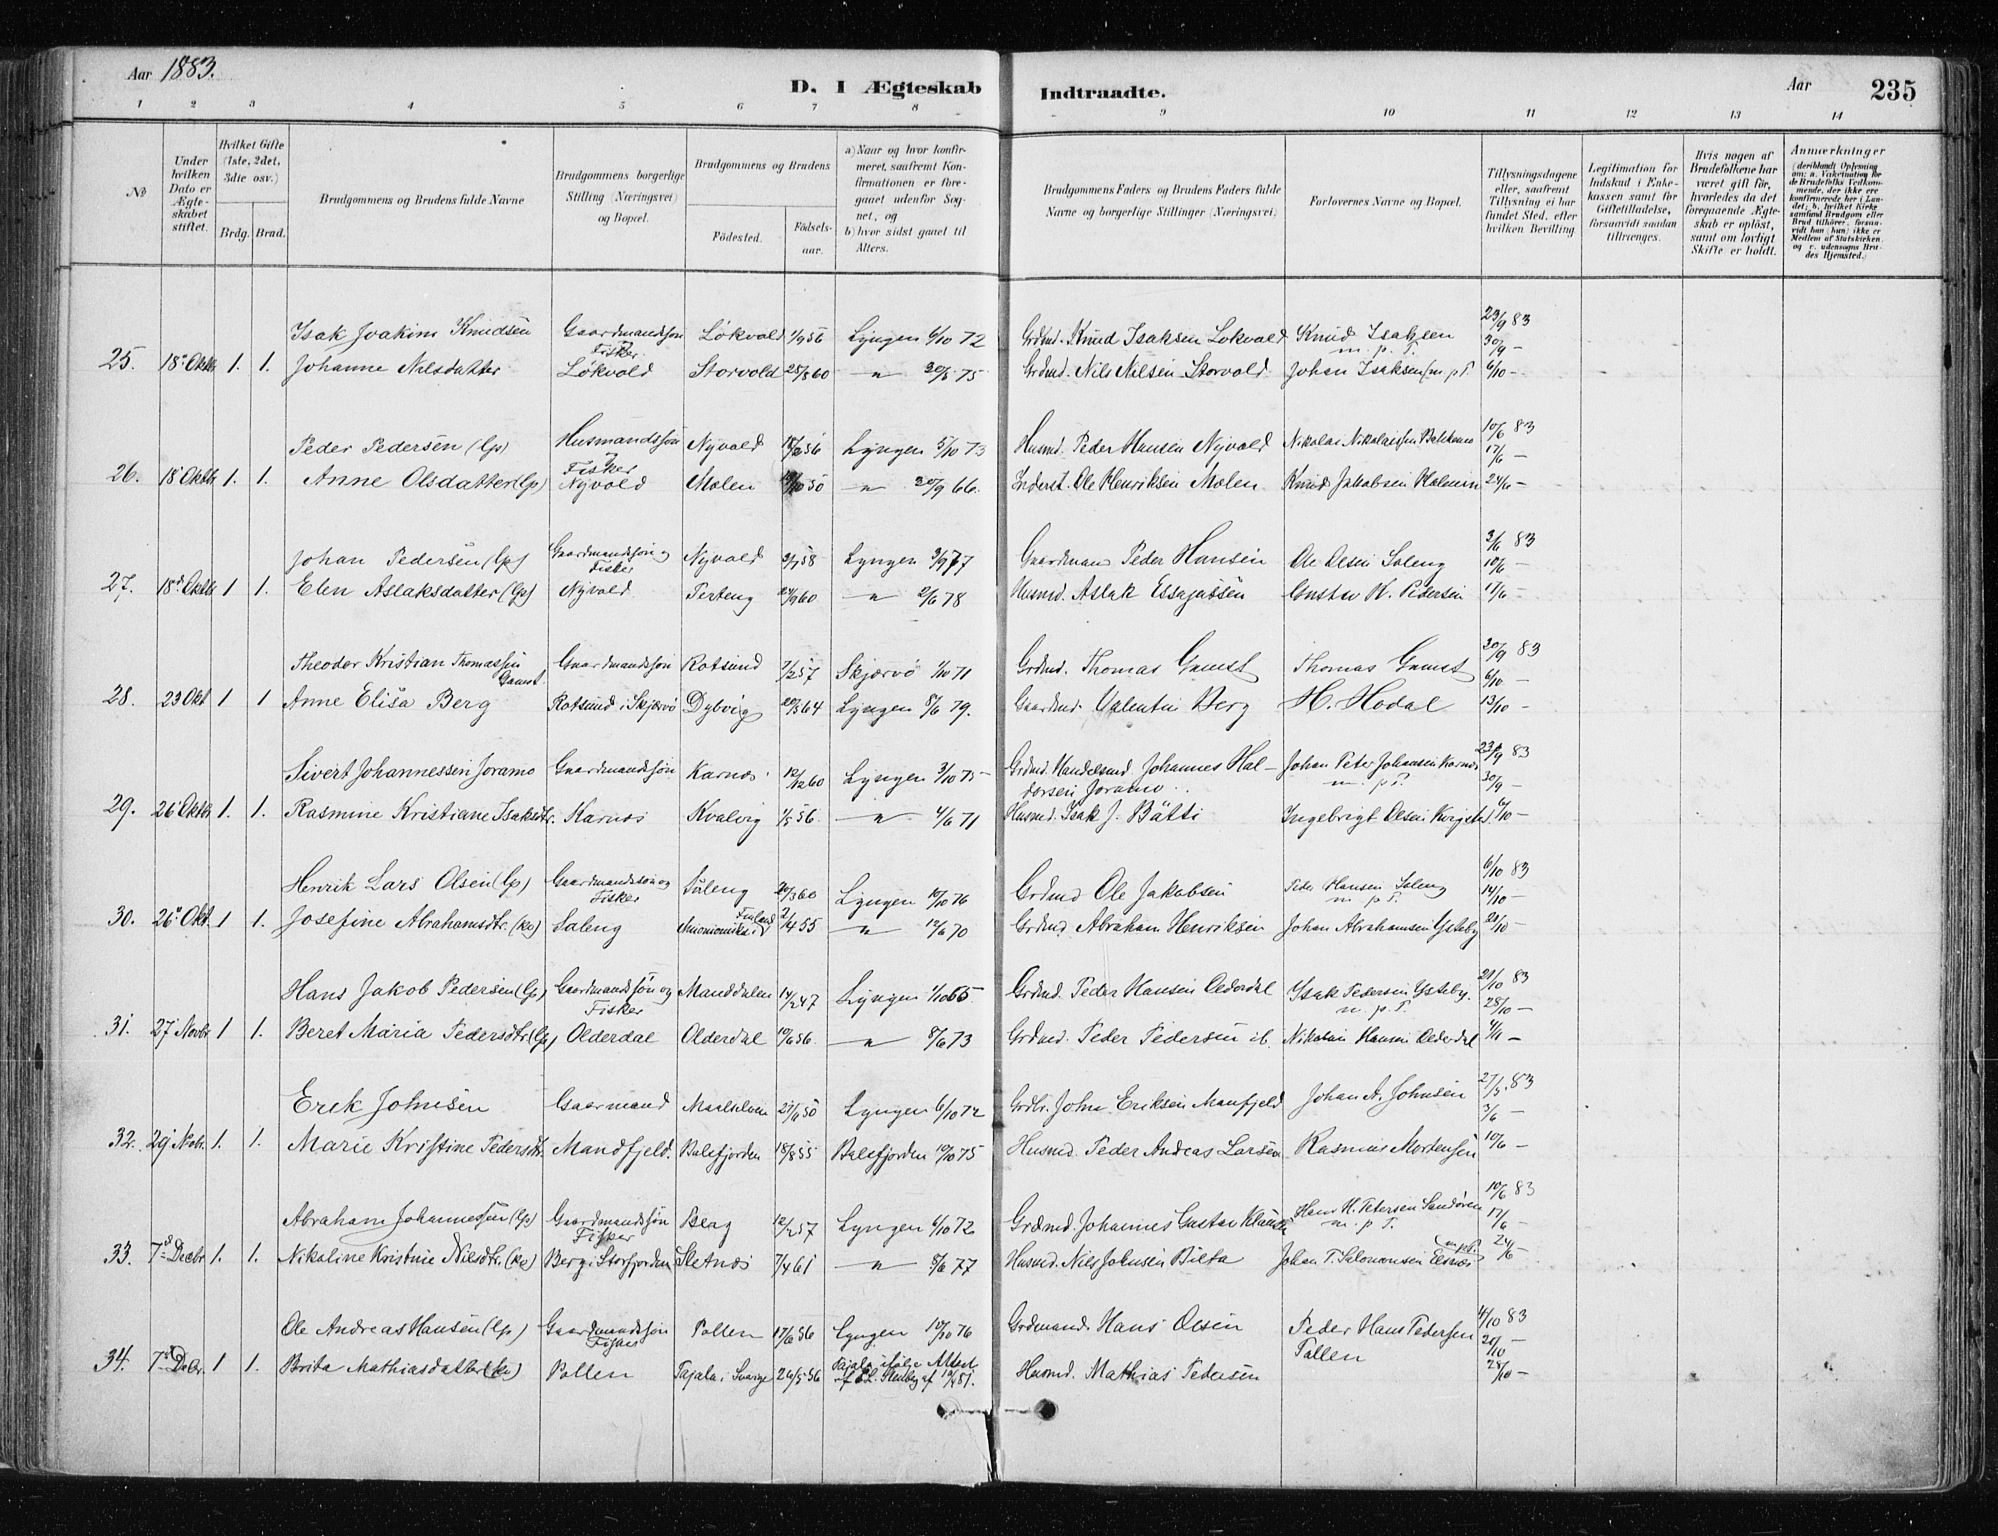 Aar 1883.
D. I Ægteskab Indtraadte.
Aar 235
1 2 3 4 5 6 7 8 9 10 11 12 13 14
№
Under hvilken Dato er Ægteskabet stiftet.
Hvilket Gifte (1ste, 2det, 3die osv.)
Brdg. Brud.
Brudgommens og Brudens fulde Navne
Brudgommens borgerlige Stilling (Næringsvei) og Bopæl.
Brudgommens og Brudens
Födested. Födselsaar.
a) Naar og hvor konfirmeret, saafremt Konfirmationen er foregaaet udenfor Sognet, og
b) hvor sidst gaaet til Alters.
Brudgommens Faders og Brudens Faders fulde Navne og borgerlige Stillinger (Næringsvei)
Forlovernes Navne og Bopæl.
Tillysningsdagene eller, saafremt Tillysning ei har fundet Sted, efter hvilken Bevilling
Legitimation for Indskud i Enkekassen samt for Giftetilladelse, forsaavidt saadan tiltrænges.
Hvis nogen af Brudefolkene har været gift för, hvorledes da det foregaaende Ægteskab er oplöst, samt om lovligt Skifte er holdt.
Anmærkninger
(deriblandt Oplysning om: a. Vakcination for de Brudefolks Vedkommende, der ikke ere konfirmerede her i Landet; b. hvilket Kirkesamfund Brudgom eller Brud tilhörer, forsaavidt han (hun) ikke er Medlem af Statskirken, og c. udensogns Brudes Hjemsted.)
Isak Joakim Knudsen Gaardmandssøn Fisker Lökvold 1/9 56 Lyngen 6/10 72 Grdmd. Knud Isaksen Lökvold Knud Isaksen m. p. P. 23/9 83
30/9 –
25. 18de Oktbr 1. 1. Johanne Nilsdatter Lökvold Storvold 25/8 60 " 20/6 75 Grdmd. Nils Nilsen Storvold Johan Isaksen (m. p. P. 6/10 –
Peder Pedersen (Lp) Husmandssøn Fisker Nyvold 56 Lyngen 5/10 73 Husmd. Peder Hansen Nyvold Nikolai Nikolaisen 10/6 83
17/6 –
26. 18 Oktbr 1. 1. Anne Olsdatter (Lp) Nyvold Molen 50 " 30/9 66. Inderst. Ole Henriksen Molen Knud Jakobsen 24/6 –
Johan Pedersen (Lp) Gaardmandssøn og Fisker Nyvold 58 Lyngen 3/9 77 Gaardmand Peder Hansen Ole Olsen Soleng 3/6 83
10/6 –
27. 18de Oktbr 1 1. Elen Aslaksdatter (Lp) Nyvold Perteng 60 " 2/6 78 Husmd. Aslak Essajassen Gustav K. Pedersen 17/6 –
Theodor Kristian Thomassen Gamst. Gaardmandssøn Rotsund 7/2 57 Skjervö 1/10 71 Grdmd. Thomas Gamst Thomas Gamst 30/9 83
6/10 –
28. 23 Okt 1 1 Anne Elisa Berg Rotsund i Skjervö Dybvig 20/3 64 Lyngen 8/6 79. Gaardmd. Valentin Berg H. Hodal 13/10 –
Sivert Johannessen Joramo Gaardmandssøn Karnes 12/12 60 Lyngen 3/10 75 Grdmd. Handelsmd Johannes Hal- Johan Peter Johansen Karnes 23/9 83
dorsen Joramo. m. p. P. 30/9 –
29. 26de Oktbr 1. 1. Rasmine Kristiane Isaksdtr. Karnes Kvalvig 1/5 56. " 4/6 71 Husmd. Isak J. Bätti Ingebrigt Olsen 6/10 –
Henrik Lars Olsen (Lp) Gaardmandssøn og Fisker Soleng 20/3 60 Lyngen 10/10 76 Grdmd Ole Jakobsen Peder Hansen Soleng m. p. P. 6/10 83
14/10 –
30. 26de Okt. 1 1. Josefine Abrahamsdtr. (Kv) Soleng Muonioniska i Finland 2/4 55 " 12/6 70 Grdmd Abraham Henriksen Johan Abrahamsen Ysteby 21/10 –
Hans Jakob Pedersen (Lp) Gaardmandssøn og Fisker Manddalen 14/2 47 Lyngen 1/10 65 Grdmd. Peder Hansen Olderdal Isak Pedersen Ysteby. m. p. P. 21/10 83
28/10 –
31. 27de Novbr 1 1. Beret Maria Pedersdtr (Lp) Olderdal Olderdal 10/6 56. " 8/6 73 Grdmd. Peder Pedersen ib. Nikolai Hansen Olderdal 4/11 –
Erik Johnsen Gaarmand 50 Lyngen 6/10 72 Grdbr. John Eriksen Manfjeld Johan A. Johnsen 27/5. 83
3/6 –
32. 29de Novbr. 1. 1. Marie Kristine Pedersdtr. Mandfjeld. Balsfjorden 18/8 55 Balsfjorden 10/10 75 Husmd. Peder Andreas Larsen Rasmus Mortensen 10/6 –
Abraham Johannessen (Lp) Gaardmandssøn Fisker Berg 12/2 57 Lyngen 6/10 72 Grdmd. Johannes Gustav Hans H. Petersen Sandören m. p. P. 10/6 83
17/6 –
33. 7de Decbr 1. 1. Nikoline Kristine Nilsdtr. (Kv) Berg i Storfjorden Sletnes 7/4 61 " 8/6 77 Husmd. Nils Johnsen Bilta Johan P. Salomonsen Elsnes m. p. P. 24/6 –
Ole Andreas Hansen (Lp) Gaardmandssøn Fisker Pollen 17/6 56 Lyngen 10/10 76 Grdmand. Hans Olsen Peder Hans Pedersen Pollen 14/10 83
21/10 –
34. 7de Decbr. 1 1. Brita Mathiasdatter (Kv) Pollen Pajala i Sverige 26/5 56 Pajala ifölge Attest Husmd. Mathias Pedersen 28/10 –